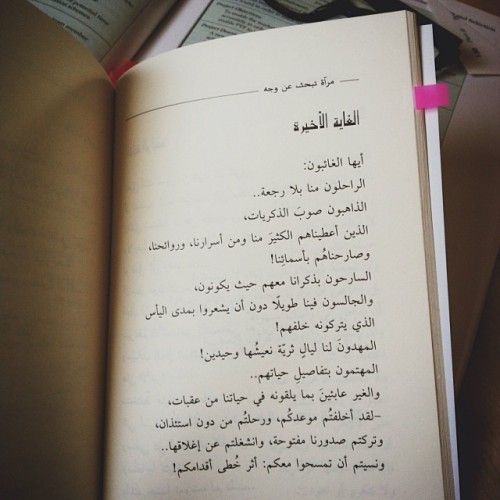 مرآة تبحث عن وجه
الغاية الأخيرة
أيها الغائبون:
الراحلون منا بلا رجعة..
الذاهبون صوبَ الذكريات،
الذين أعطيناهم الكثيرَ منا ومن أسرارنا، وروائحنا،
وصارحناهُم بأسمائِنا!
السارحون بذكرانا معهم حيث يكونون،
والجالسون فينا طويلًا دون أن يشعروا بمدى اليأس
الذي يتركونه خلفهم!
المهدونَ لنا ليالٍ ثريّة نعيشُها وحيدين!
المهتمون بتفاصيلِ حياتهم..
والغير عابئينَ بما يلقونه في حياتنا من عقبات،
-لقد أخلفتُم موعدكُم، ورحلتُم من دون استئذان،
وتركتم صدورنا مفتوحة، وانشغلتم عن إغلاقها..
ونسيتم أن تمسحوا معكم: أثر خُطى أقدامكم!